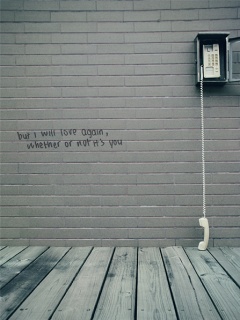 but I will love again,
whether or not it's you